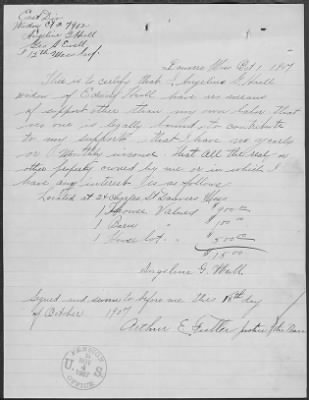 East Div
Widow
Angeline G Hall
Geo S Evell
F 12th Mass Inf.
Danvers Oct 1 1907
This is to certify that I Angeline G Hall
widow of Edwin Hall have no means
of support other than my own labor that
no one is legally bound to contribute
to my support that I have no yearly
or monthly income that all the real or
other property owned by me or in which I
have any interest is as follows
Located at 24 Charles St Danvers Mass
1 House Values $900
1 Barn " $100
1 House lot " $500
$1500
Angeline G. Hall
Signed and sworn to before me this day
of October 1907
Arthur E justice
PENSION
U S
1907
OFFICE